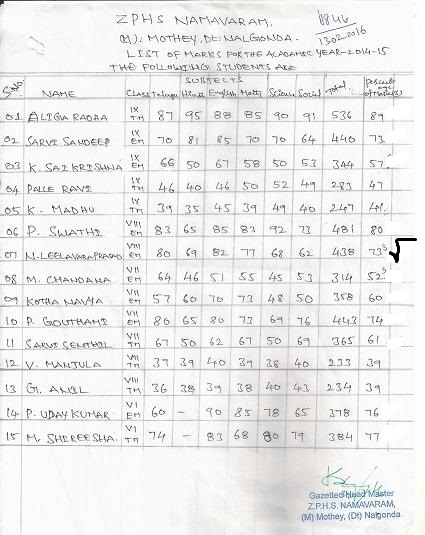 ZPHS NAMAVARAM.
(M): MOTHEY, DE: NALGONDA. 13-02-2016
LIST OF MARKS FOR THE ACADAMIC YEAR-2014-15
THE FOLLOWING STUDENTS ARE
SUBJECTS
S.No. NAME Class Telugu Hindi English Maths Science Social Total Percentage of Marks
01 ALIGIA RADHA IX TM 87 95 88 85 90 91 536 89
02 SARVI SANDEEP IX EM 70 81 85 70 70 64 440 73
03 K. SAI KRISHNA IX EM 66 50 67 58 50 53 344 57
04 PALLE RAVI IX TM 46 40 46 50 52 49 283 47
05 K. MADHU IX TM 39 35 45 39 49 40 247 41
06 P. SWATHI VIII EM 83 65 85 83 92 73 481 80
07 N. LEELAVARA PRASAD VIII EM 80 69 82 77 68 62 438 73 √
08 M. CHANDANA VII EM 64 46 51 55 45 53 314 52
09 KOTHA NAVYA VII EM 57 60 70 73 48 50 358 60
10 P. GOUTHAMI VII EM 80 65 80 73 69 76 443 74
11 SARVI SENTHIL VII TM 67 50 62 67 50 69 365 61
12 V. MANJULA VII TM 37 39 40 39 38 40 233 39
13 G. ANIL VIII TM 36 38 39 38 40 43 234 39
14 P. UDAY KUMAR VI EM 60 - 90 85 78 65 378 76
15 M. SHIREESHA. VI TM 74 - 83 68 80 79 384 77
Gazetted Head Master
Z.P.H.S. NAMAVARAM,
(M) Mothey, (Dt) Nalgonda.